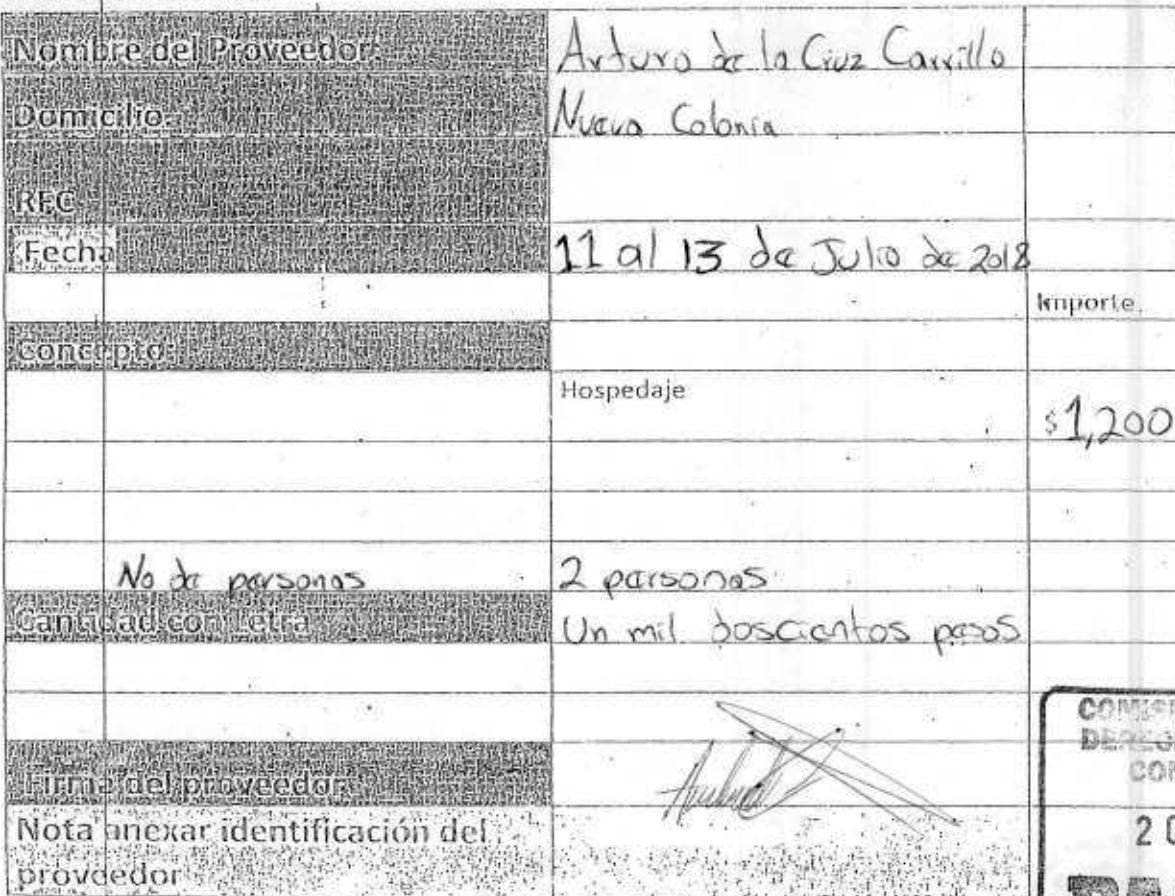 Nombre del Proveedor: Arturo de la Cruz Carrillo
Domicilio: Nueva Colonia
RFC
Fecha 11 al 13 de Julio de 2018
Importe
Concepto:
Hospedaje $1,200
No de personas 2 personas
Cantidad con Letra Un mil doscientos pesos
Firma del proveedor:
Nota anexar identificación del
proveedor
2